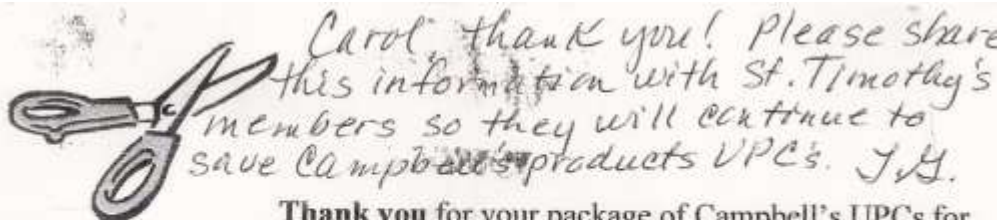 Carol, thank you! Please share
this information with St. Timothy's
members so they will continue to
save Campbell's products UPC's. T.G.
Thank you for your package of Campbell's UPCs for